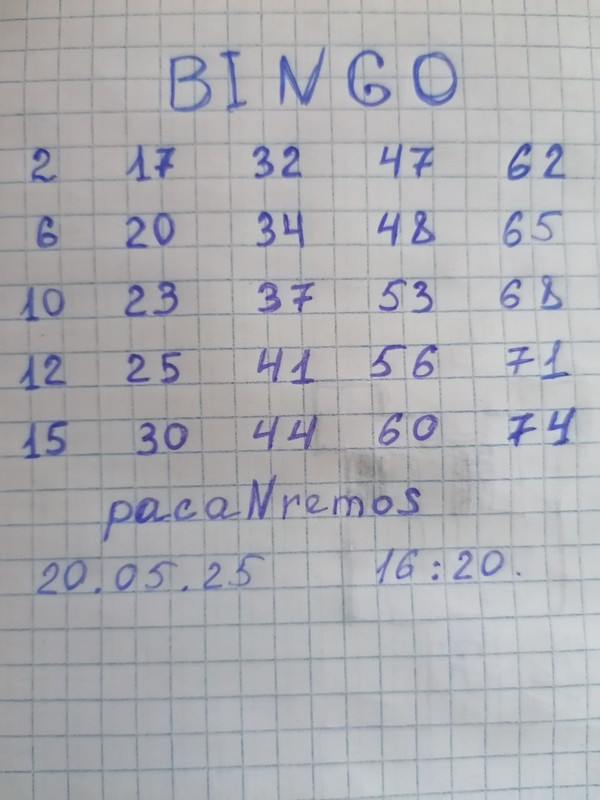 BINGO
2 17 32 47 62
6 20 34 48 65
10 23 37 53 68
12 25 41 56 71
15 30 44 60 74
pacaNremos
20.05.25 16:20.